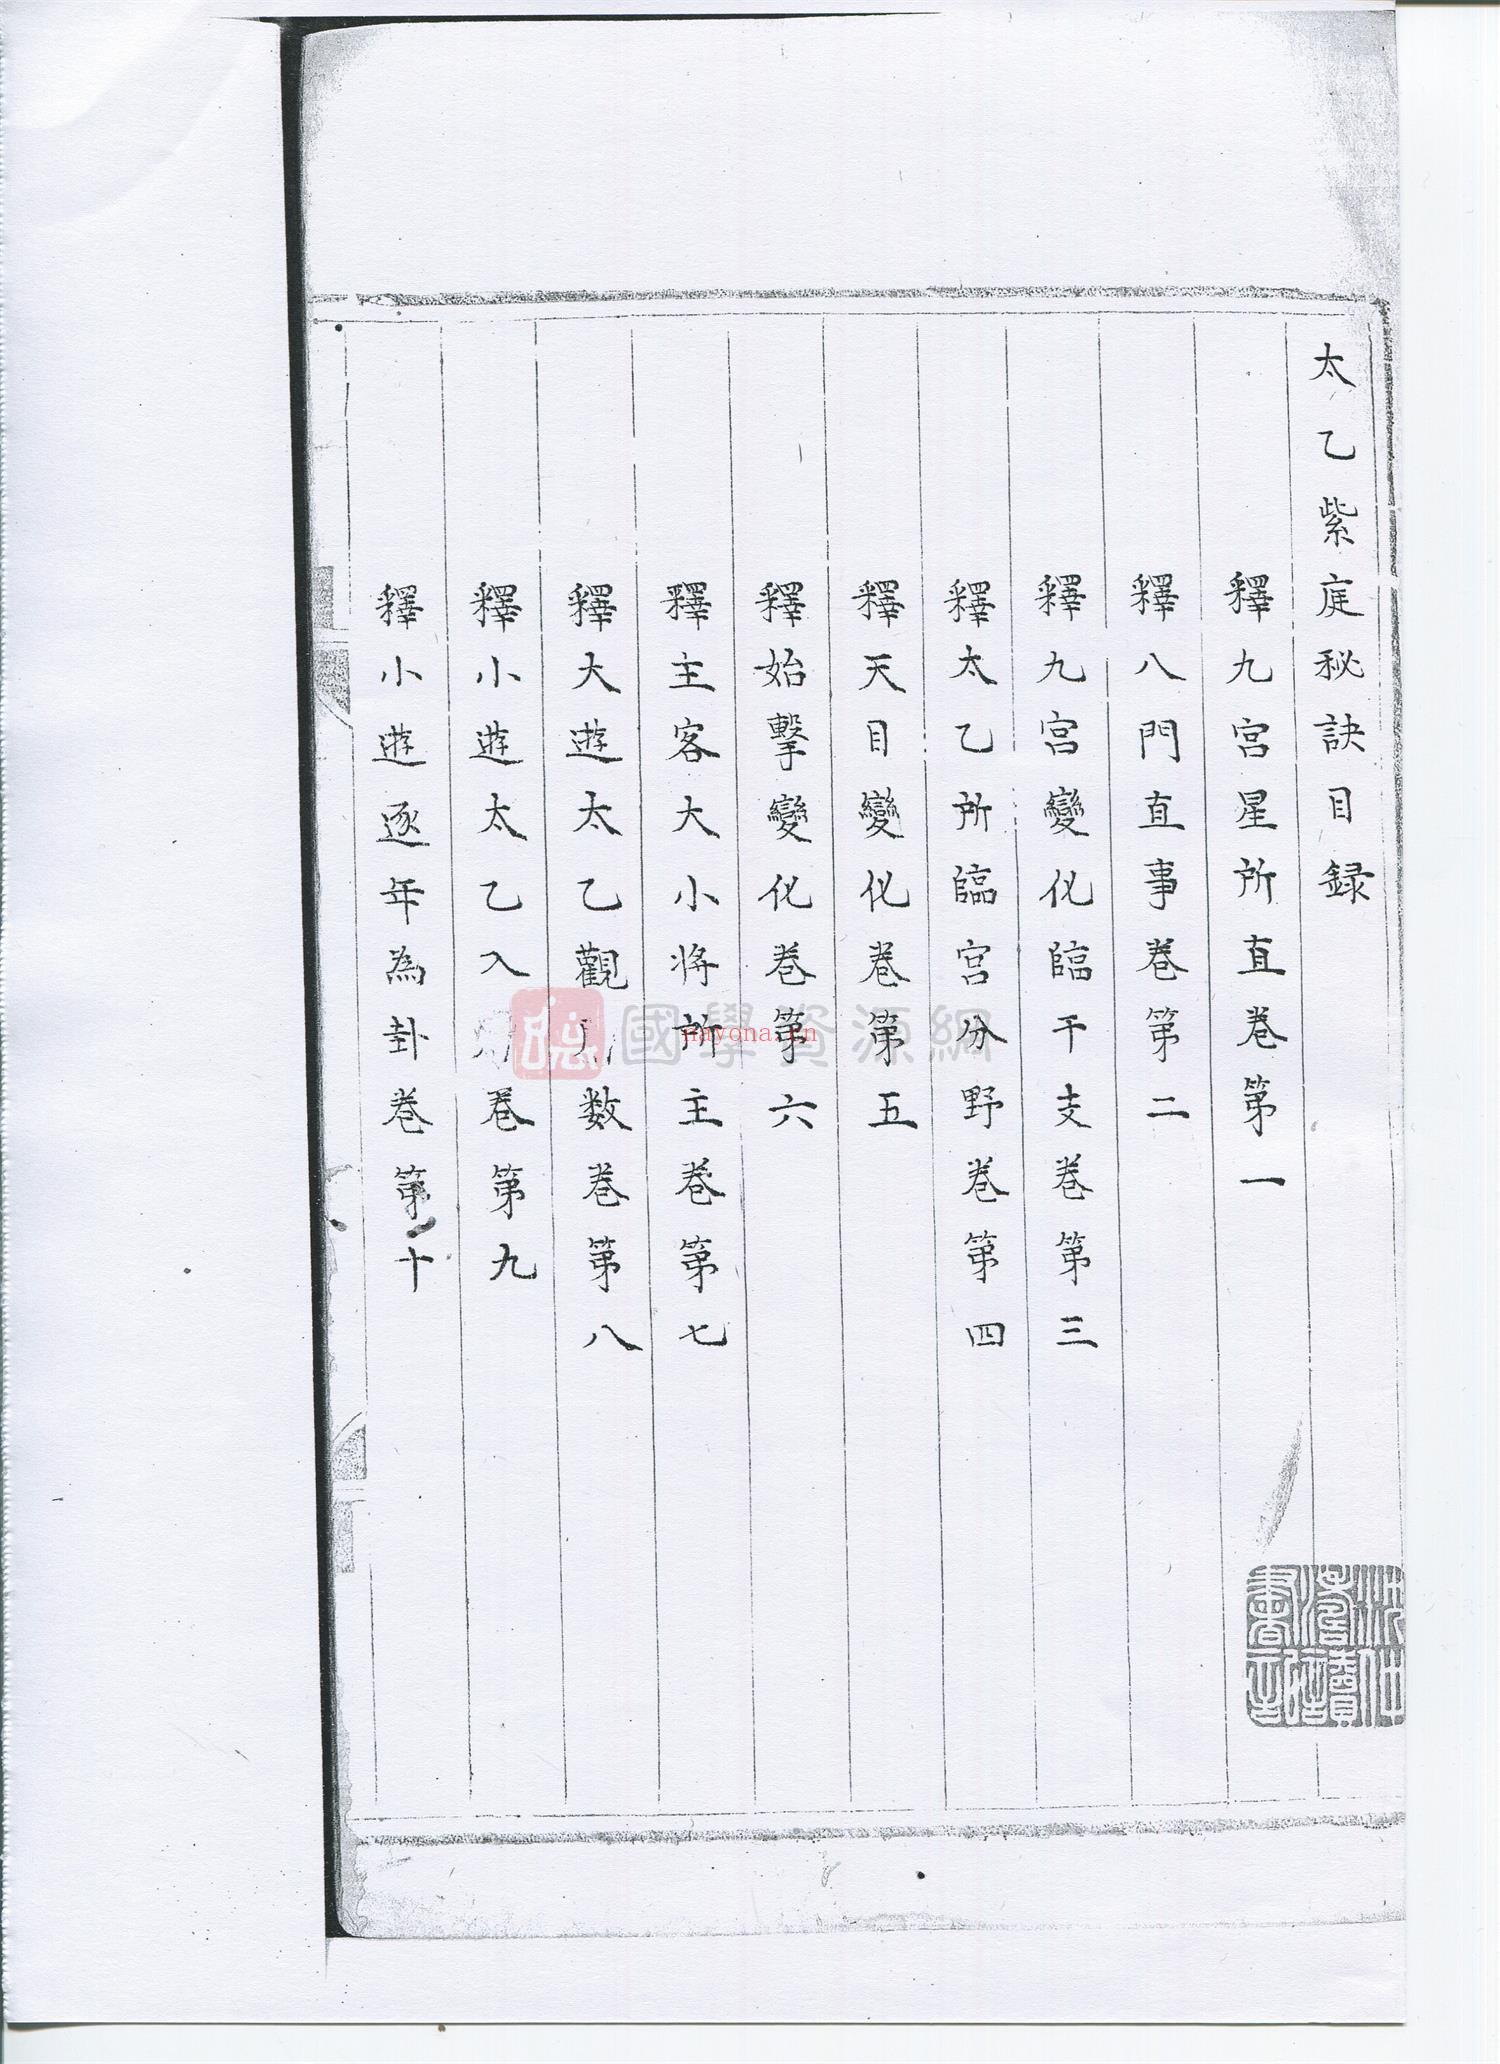 太乙紫庭秘訣目録
釋九宮星所直卷第一
釋八門直事卷第二
釋九宮變化臨干支卷第三
釋太乙所臨宮分野卷第四
釋天目變化卷第五
釋始擊變化卷第六
釋主客大小將所主卷第七
釋大遊太乙觀數卷第八
釋小遊太乙入卷第九
釋小遊逐年為卦卷第十
國學資源網
nayona.cn